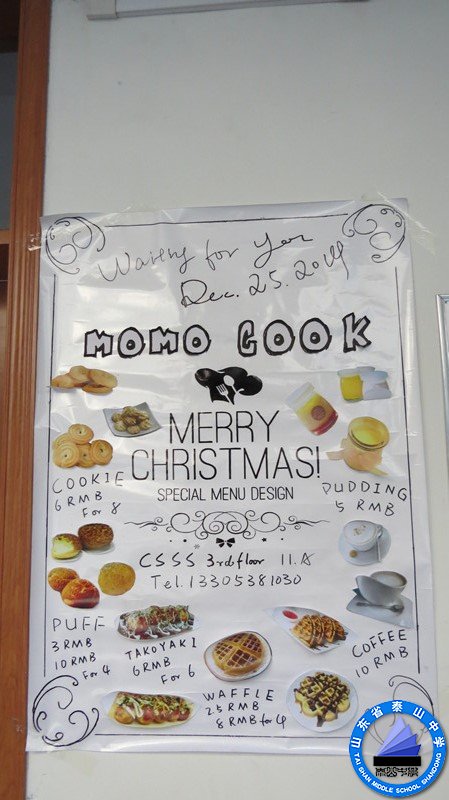 Waiting for You
Dec. 25. 2014
MOMO COOK
MERRY
CHRISTMAS!
SPECIAL MENU DESIGN
COOKIE
6 RMB
For 8
PUDDING
5 RMB
CSSS 3rd floor 11.A
Tel. 13305381030
PUFF
3 RMB
10 RMB
For 4
TAKOYAKI
6 RMB
For 6
WAFFLE
2.5 RMB
8 RMB for 4
COFFEE
10 RMB
山东省泰山中学
TAI SHAN MIDDLE SCHOOL SHANDONG